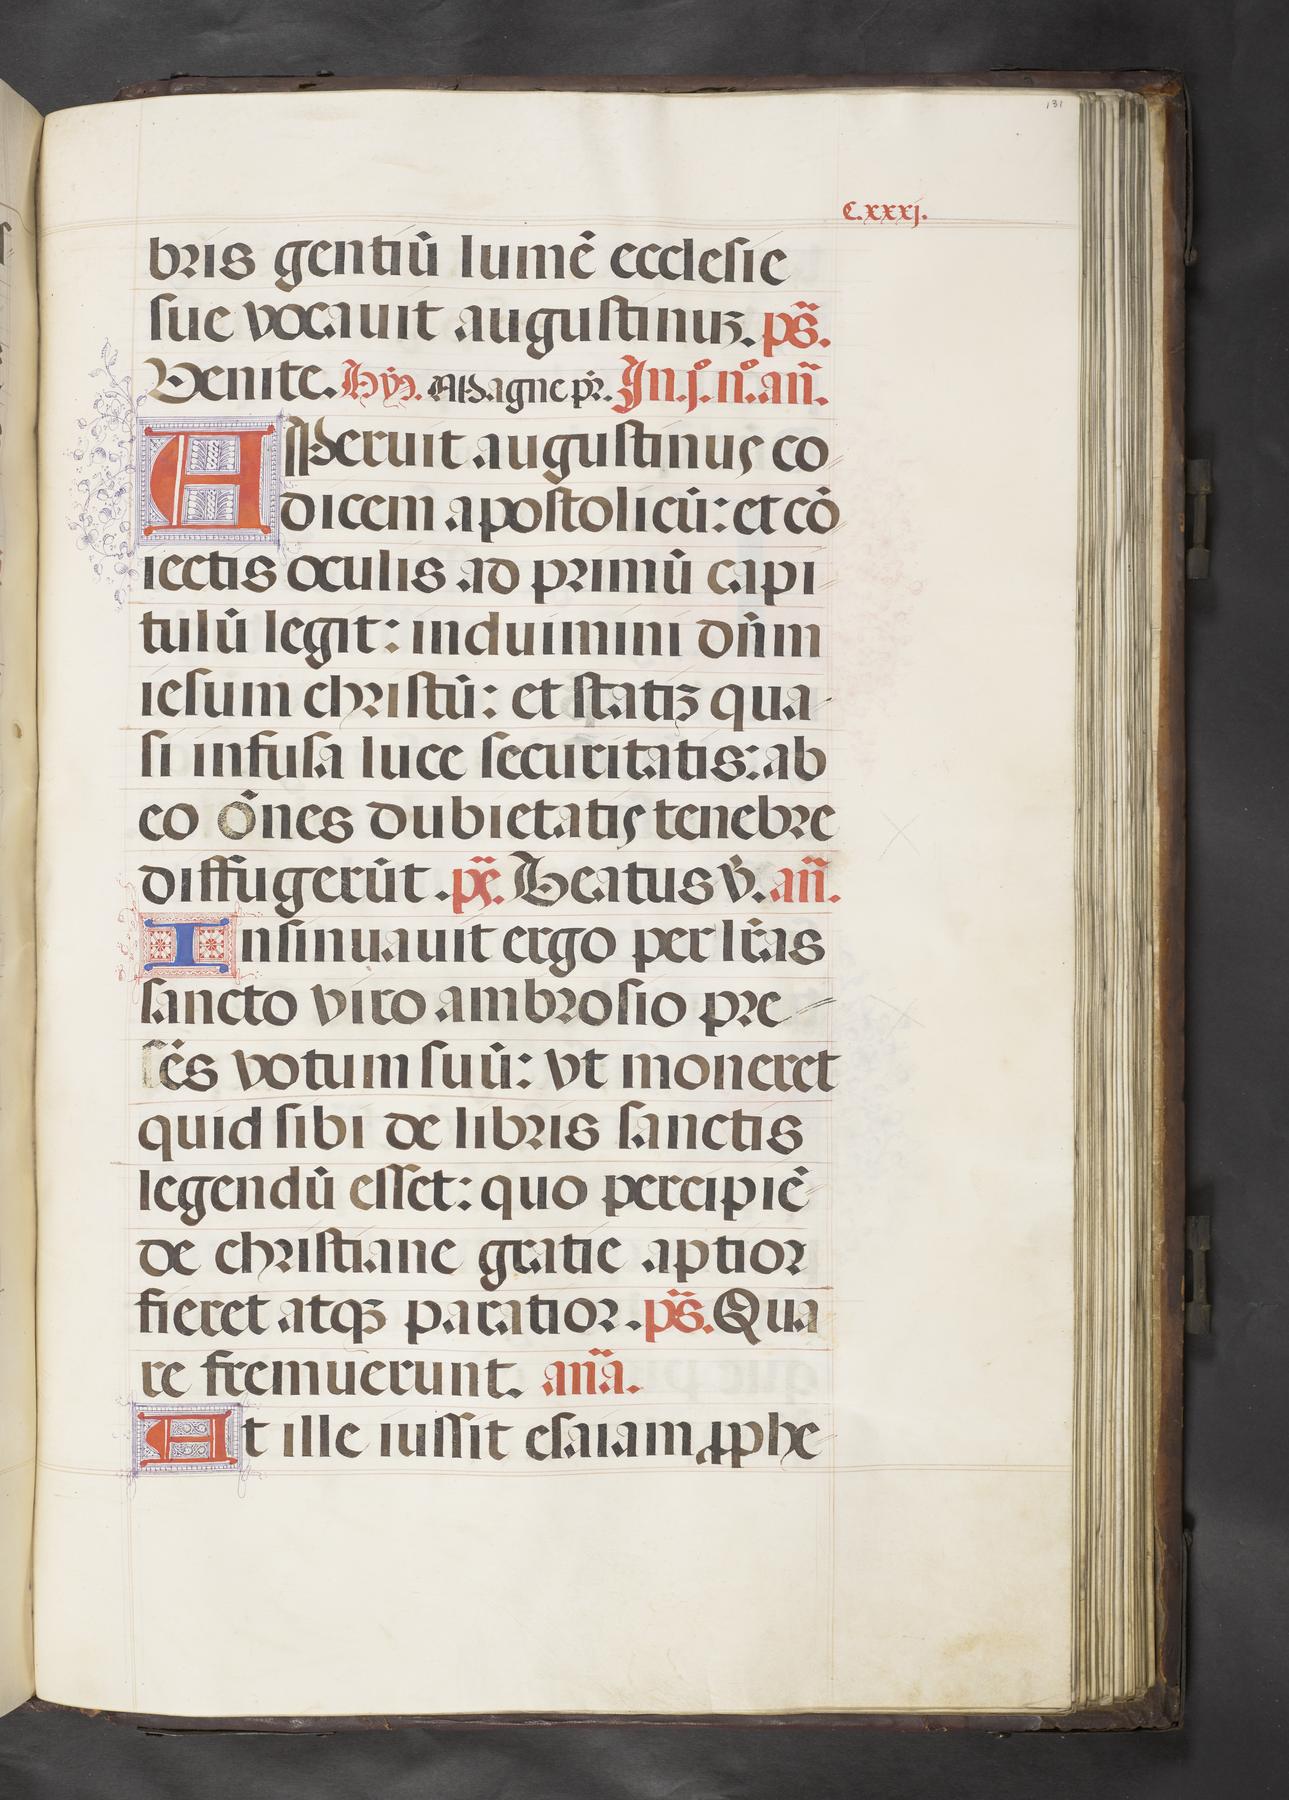 131
C.xxxj.
bris gentiū lumē ecclesie
sue vocauit augustinus. ps̄.
Venite. Hyꝫ. Magne pr̄. In .j. n°. an̄.
APeruit augustinus co
dicem apostolicū: et cō
iectis oculis ad primū capi
tulū legit: induimini dn̄m
iesum christū: et statiꝫ qua
si infusa luce securitatis: ab
eo ōnes dubietatis tenebre
diffugerūt. ps̄. Beatus v̄. an̄.
Insinuauit ergo per lr̄as
sancto viro ambrosio pre
sēs votum suū: vt moneret
quid sibi de libris sanctis
legendū esset: quo percipiē
de christiane gratie aptior
fieret atqꝫ paratior. ps̄. Qua
re fremuerunt. an̄a.
At ille iussit esaiam ꝓphe